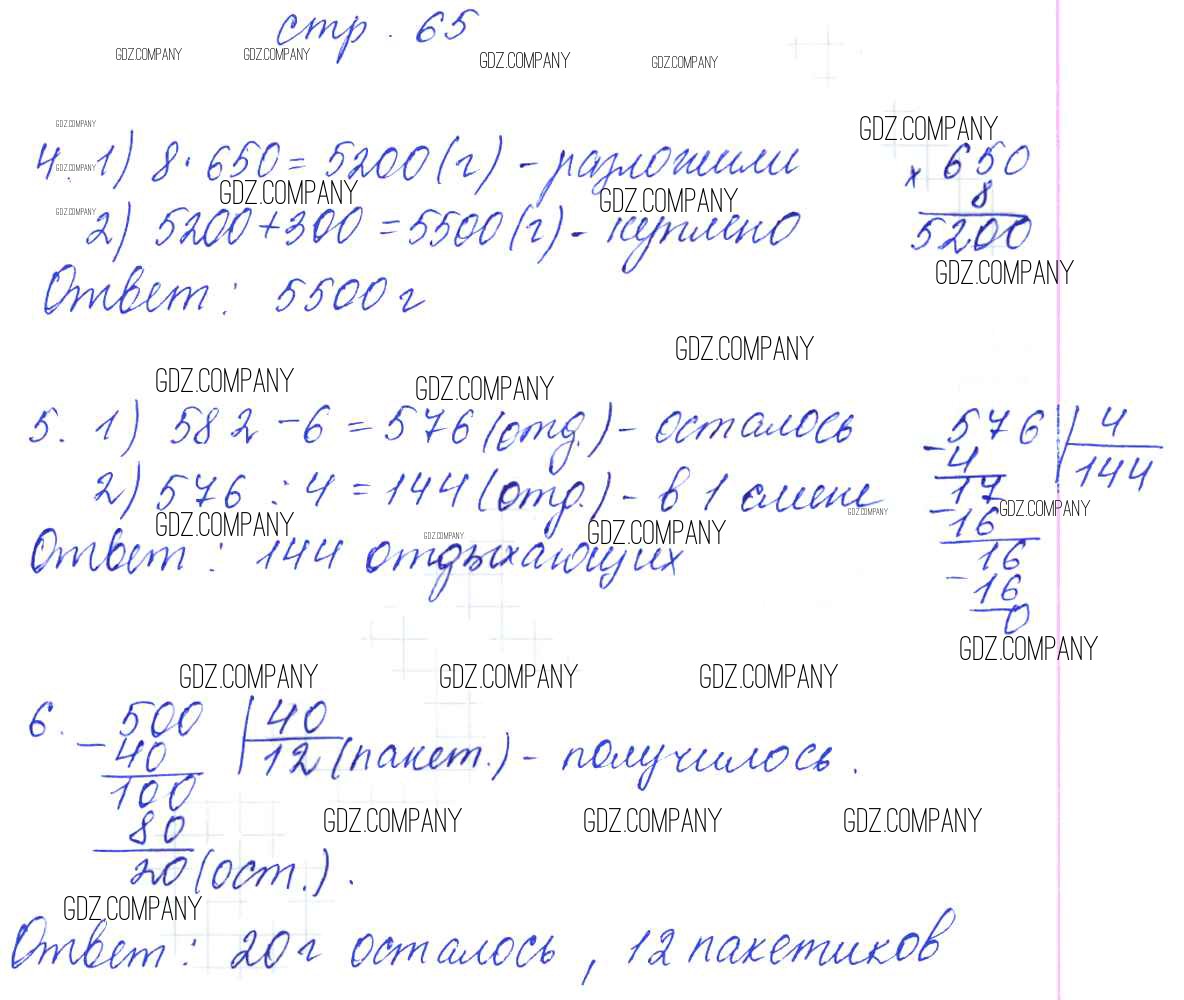 стр. 65
GDZ.COMPANY GDZ.COMPANY GDZ.COMPANY GDZ.COMPANY
GDZ.COMPANY
GDZ.COMPANY
4. 1) 8 · 650 = 5200 (г) - разложили
GDZ.COMPANY
GDZ.COMPANY GDZ.COMPANY
GDZ.COMPANY
2) 5200 + 300 = 5500 (г) - куплено
× 650
8
5200
GDZ.COMPANY
Ответ: 5500 г
GDZ.COMPANY
GDZ.COMPANY GDZ.COMPANY
5. 1) 582 - 6 = 576 (отд.) - осталось
2) 576 : 4 = 144 (отд.) - в 1 смене
GDZ.COMPANY GDZ.COMPANY GDZ.COMPANY
GDZ.COMPANY GDZ.COMPANY
Ответ: 144 отдыхающих
576 | 4
- 4 | 144
17
- 16
16
- 16
0
GDZ.COMPANY
GDZ.COMPANY GDZ.COMPANY GDZ.COMPANY
6. 500 | 40
- 40 | 12 (пакет.) - получилось.
100
80
20 (ост.).
GDZ.COMPANY GDZ.COMPANY GDZ.COMPANY
GDZ.COMPANY
Ответ: 20 г осталось, 12 пакетиков